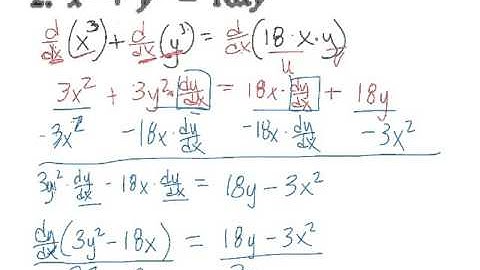 d/dx (x³) + d/dx (y³) = d/dx (18 · x · y)
u
3x² + 3y² · dy/dx = 18x · dy/dx + 18y
-3x² -18x · dy/dx -18x · dy/dx -3x²
3y² · dy/dx - 18x · dy/dx = 18y - 3x²
dy/dx (3y² - 18x) = 18y - 3x²